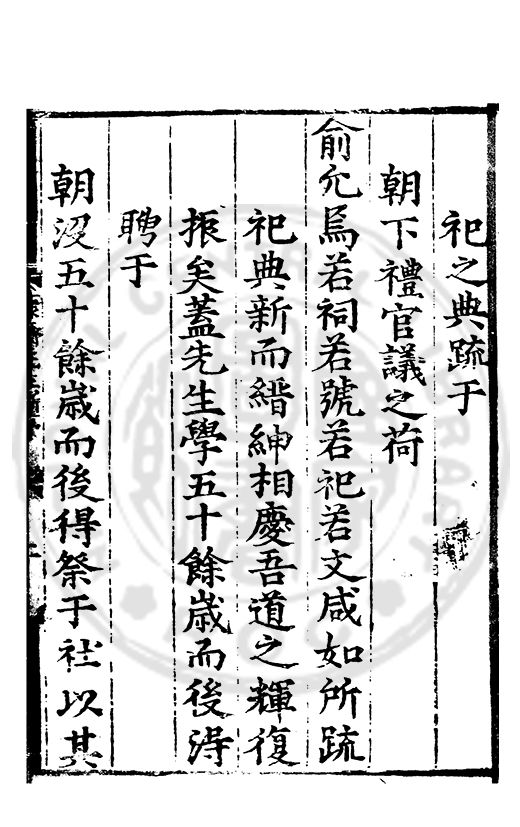 祀之典疏于
朝下禮官議之荷
俞允焉若祠若號若祀若文咸如所疏
祀典新而縉紳相慶吾道之輝復
振矣蓋先生學五十餘歲而後得
聘于
朝沒五十餘歲而後得祭于社以其